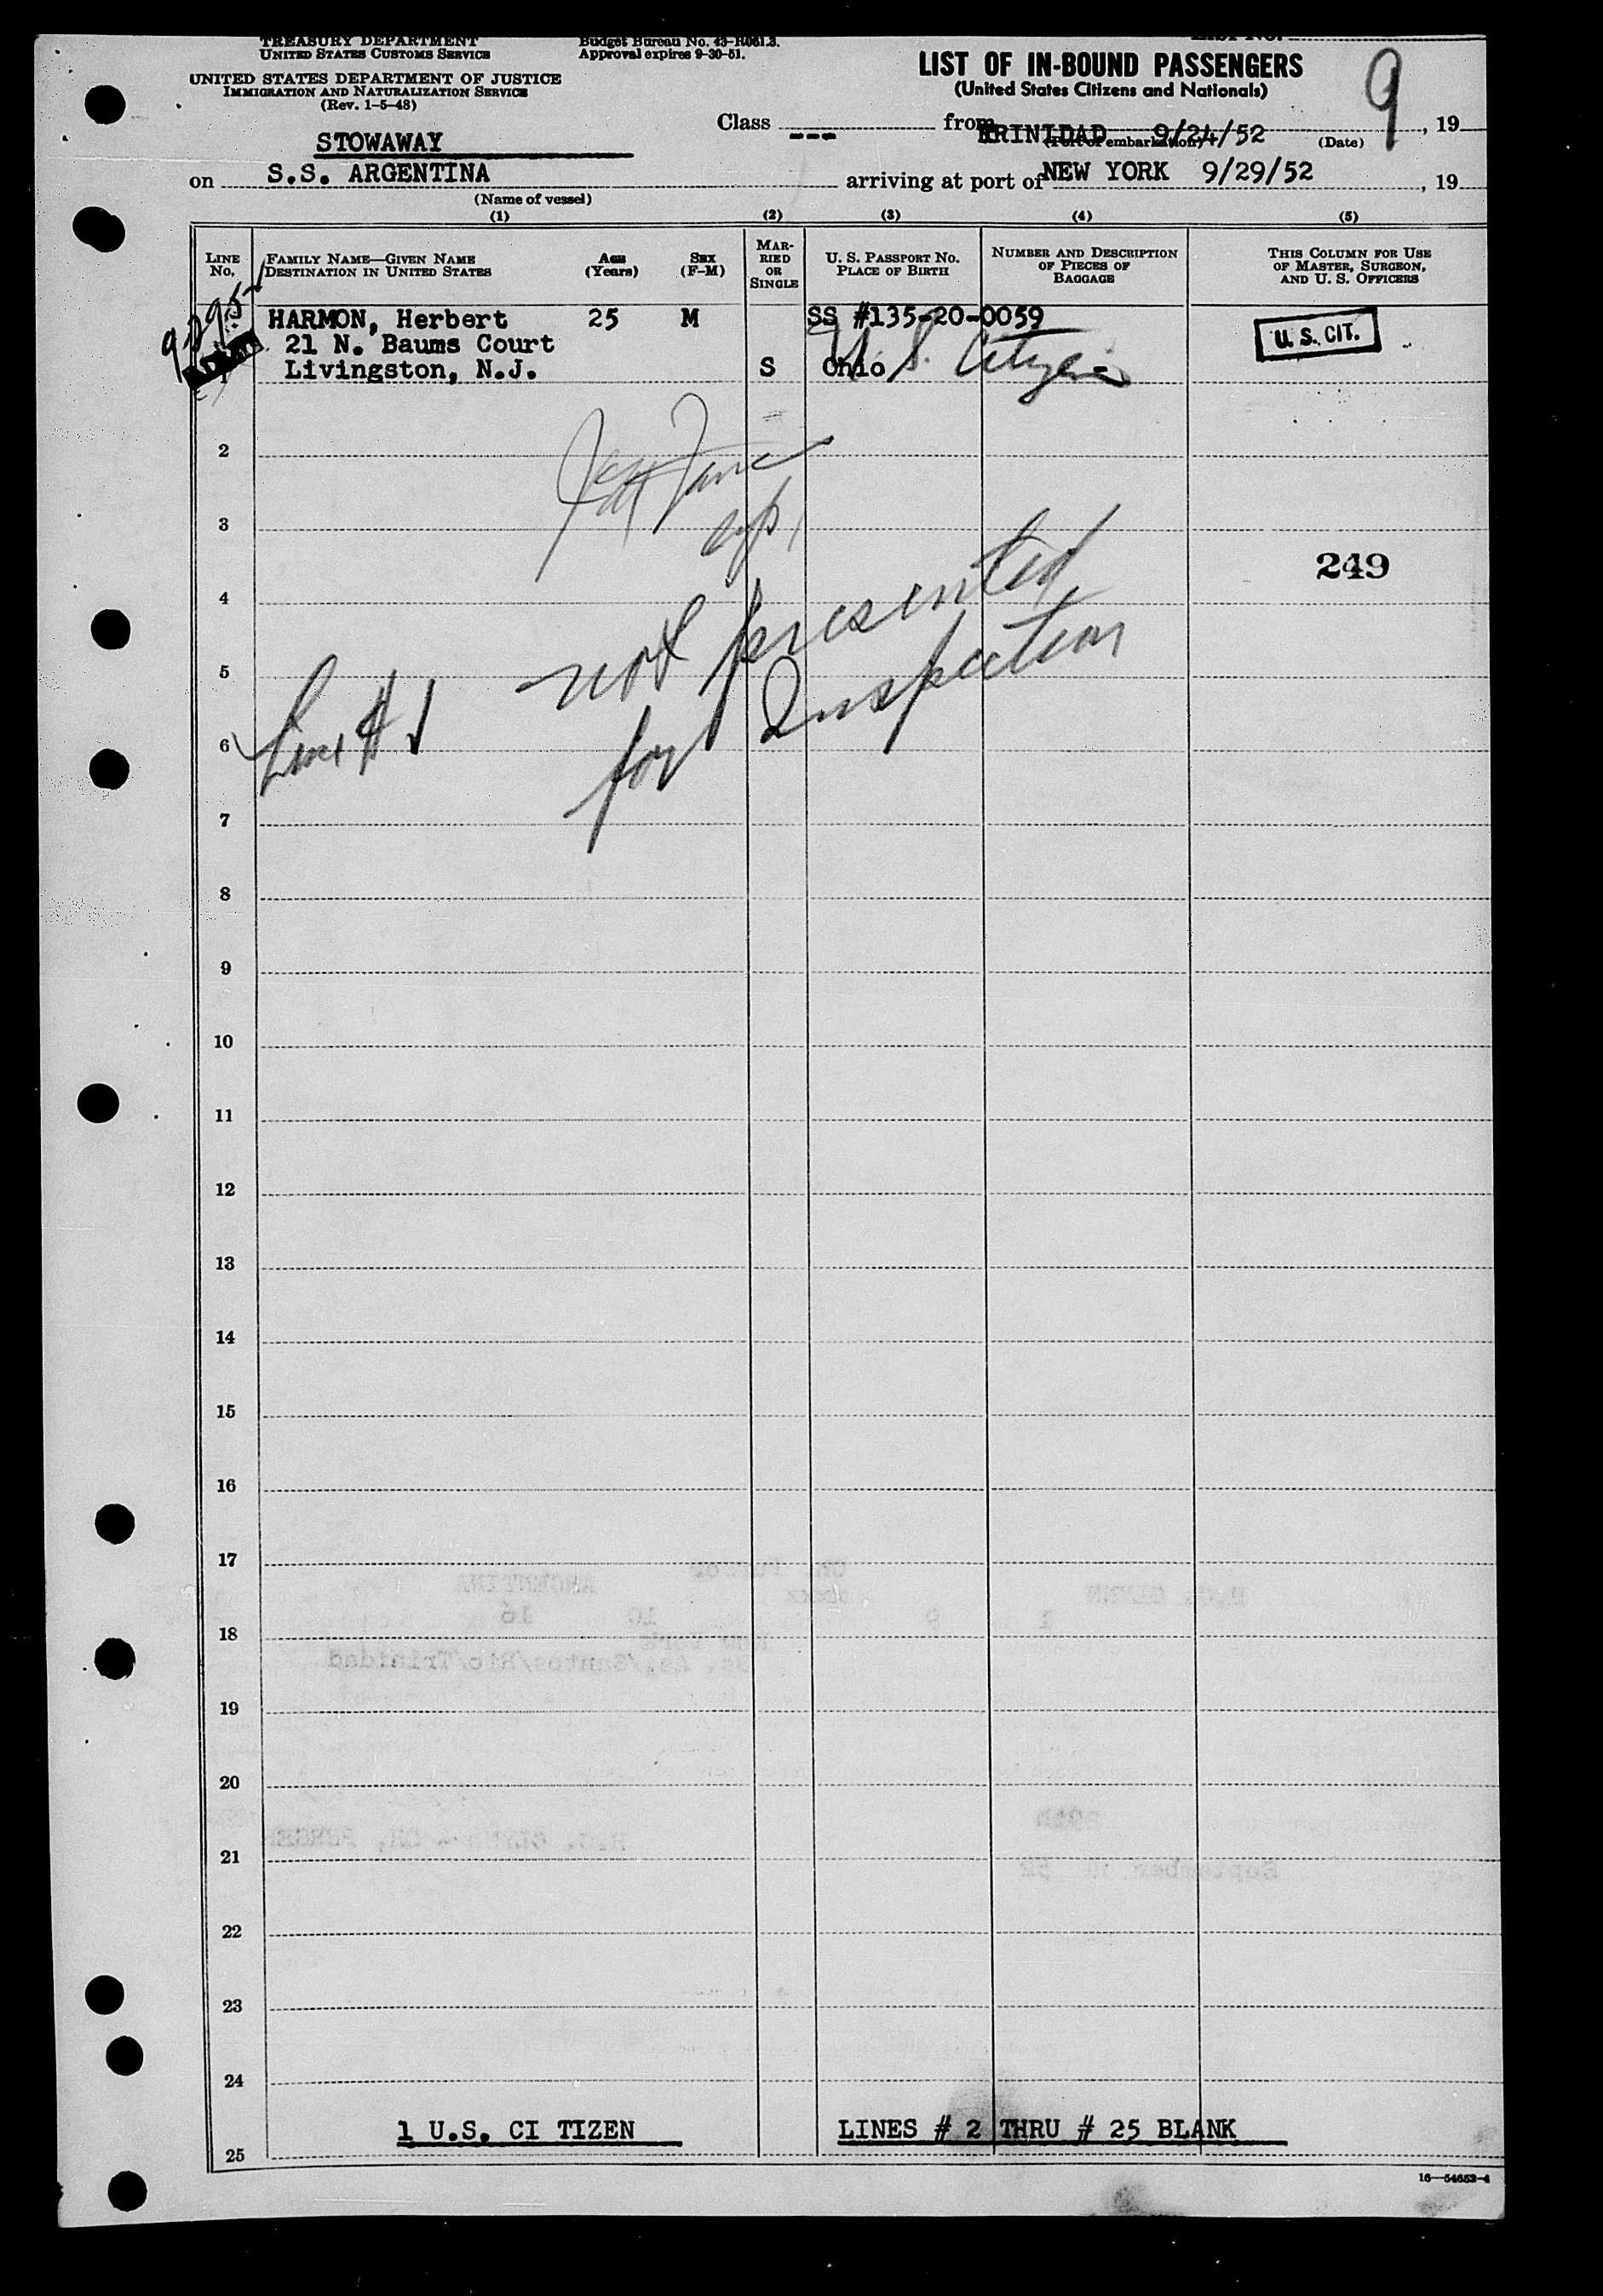 TREASURY DEPARTMENT
UNITED STATES CUSTOMS SERVICE
UNITED STATES DEPARTMENT OF JUSTICE
IMMIGRATION AND NATURALIZATION SERVICE
(Rev. 1-5-48)
Budget Bureau No. 43-R061.3.
Approval expires 9-30-51.
LIST OF IN-BOUND PASSENGERS
(United States Citizens and Nationals)
9
STOWAWAY
Class --- from TRINIDAD 9/24/52, 19
(Port of embarkation) (Date)
on S.S. ARGENTINA arriving at port of NEW YORK 9/29/52, 19
(Name of vessel)
(1) (2) (3) (4) (5)
LINE No.
FAMILY NAME—GIVEN NAME
DESTINATION IN UNITED STATES
AGE (Years)
SEX (F-M)
MARRIED OR SINGLE
U. S. PASSPORT NO.
PLACE OF BIRTH
NUMBER AND DESCRIPTION OF PIECES OF BAGGAGE
THIS COLUMN FOR USE OF MASTER, SURGEON, AND U. S. OFFICERS
HARMON, Herbert 25 M SS #135-20-0059
21 N. Baums Court
Livingston, N.J. S Ohio
U. S. Citizen
U. S. CIT.
1
2
3
249
4
not presented
for Inspection
5
Line #1
6
7
8
9
10
11
12
13
14
15
16
17
18
19
20
21
22
23
24
1 U.S. CI TIZEN LINES # 2 THRU # 25 BLANK
25
16—54652-4